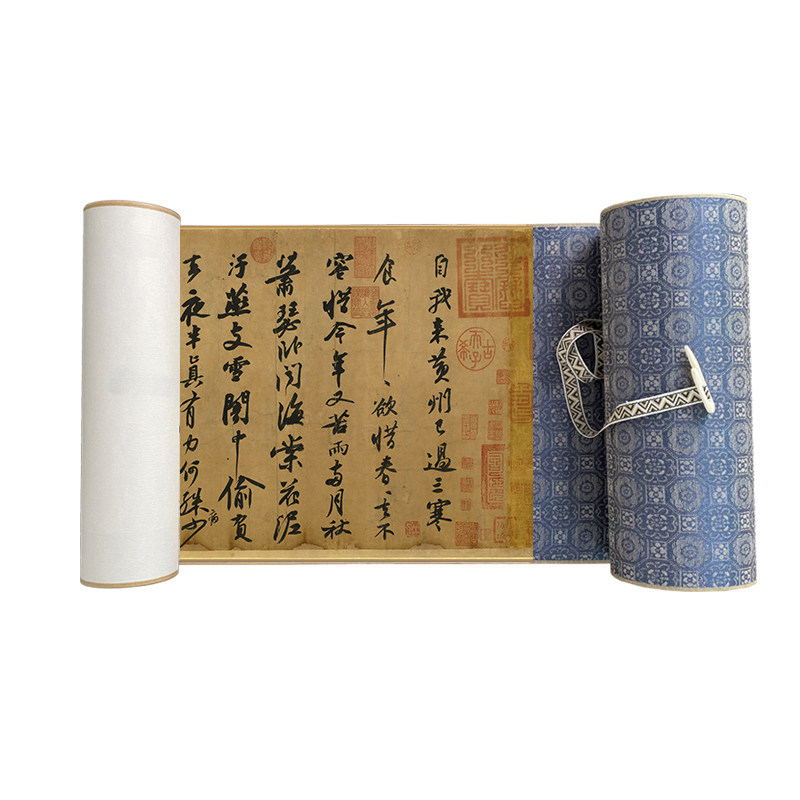 自我來黃州已過三寒
食年〻欲惜春〻去不
容惜今年又苦雨兩月秋
蕭瑟卧聞海棠花泥
汙燕支雪闇中偷負
去夜半真有力何殊少病
古希天子